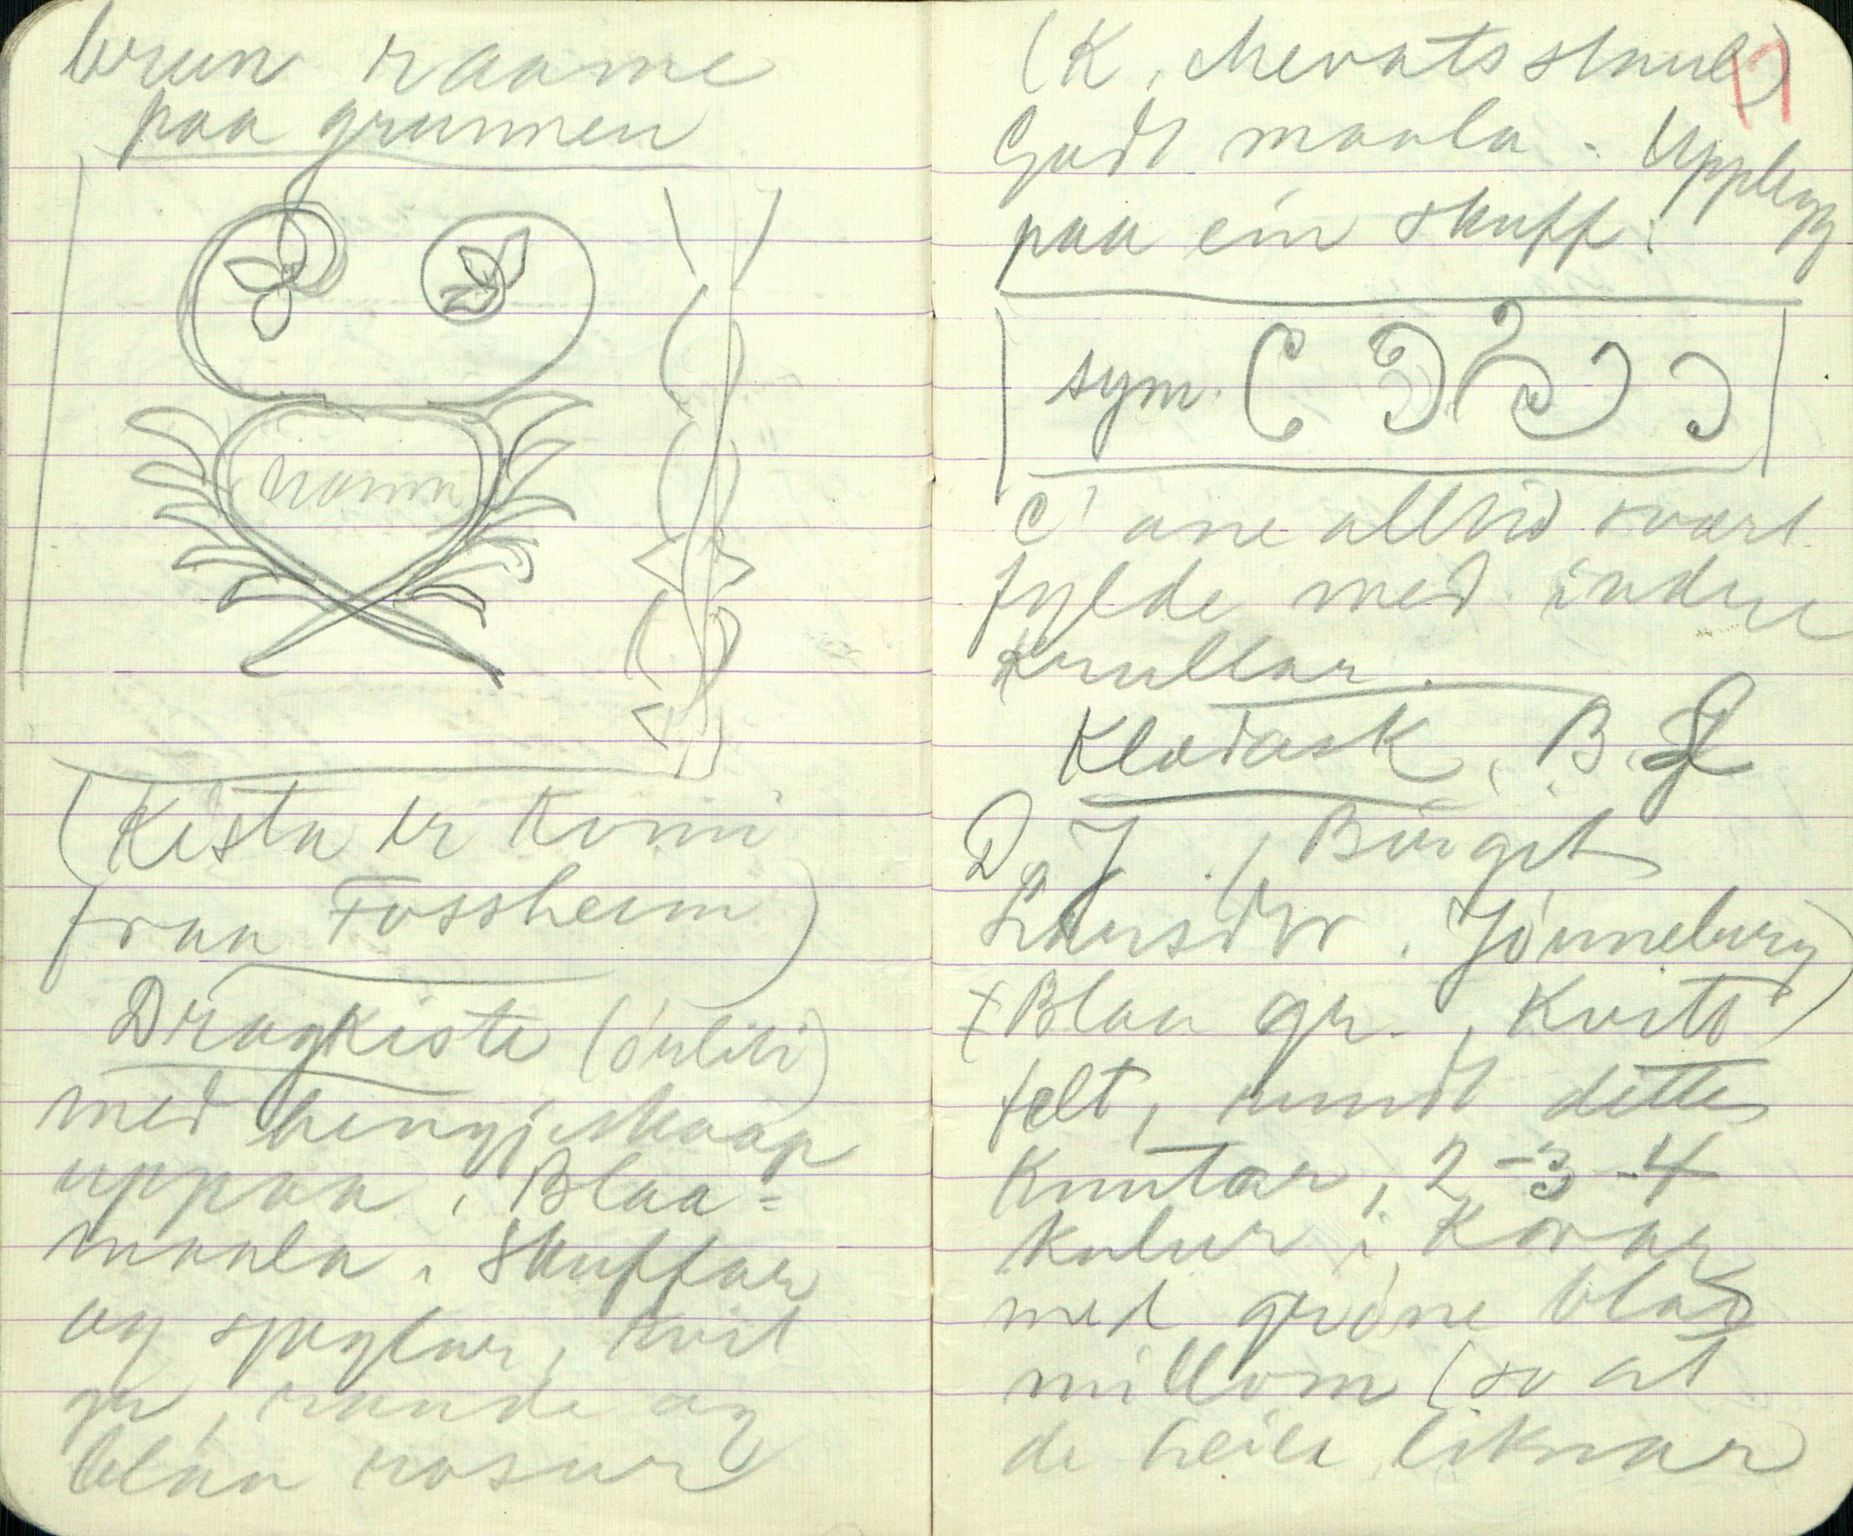 brun raame
paa grunnen
namn
(Kista er komi
fraa Fossheim)
Dragkiste (örliti)
med hengjeskaap
uppaa, Blaa=
maala. Skuffar
og speglar, kvit
gr, raude og
blaa rosur
17
Godt maala. Upplegg
paa ein skuff:
sym.
C' ane alltid svært
fylde med indre
krullar.
Klædask, B.
D. J , Birgit
Larsdtr. Jönneberg)
+ Blaa gr., kvite
felt, rundt dette
kruntar, 2-3-4
kulur i kvar
med gröne blad
millom (so at
de heile liknar